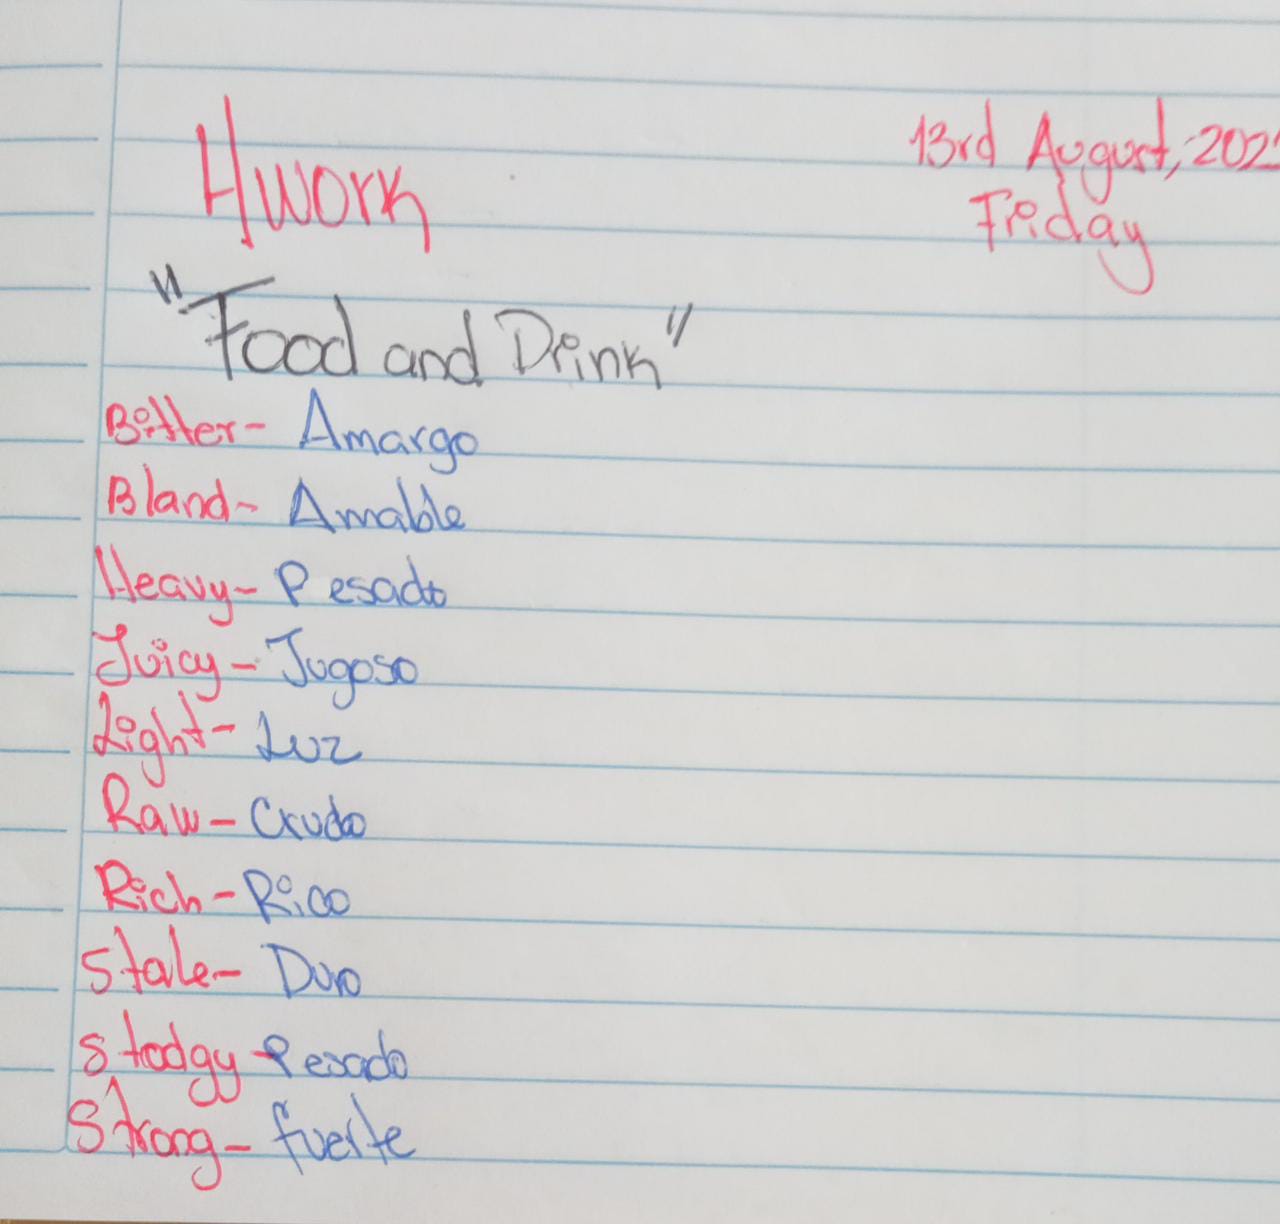 Hwork
13rd August, 202
Friday
"Food and Drink"
Bitter- Amargo
Bland- Amable
Heavy- Pesado
Juicy- Jugoso
Light- Luz
Raw- Crudo
Rich- Rico
Stale- Duro
Stodgy- Pesado
Strong- fuerte